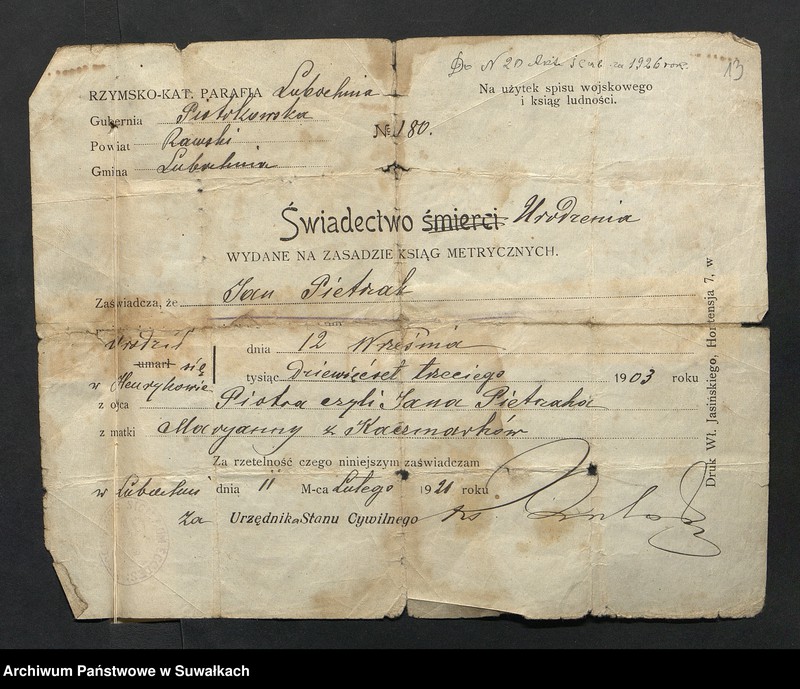 Do N 20 Akt Ślub za 1926 rok.
13
RZYMSKO-KAT. PARAFIA Lubochnia
Na użytek spisu wojskowego
i ksiąg ludności.
Gubernia Piotrkowska
№ 180.
Powiat Rawski
Gmina Lubochnia
Świadectwo śmierci Urodzenia
WYDANE NA ZASADZIE KSIĄG METRYCZNYCH.
Zaświadcza, że Jan Pietrzak
urodził dnia 12 Września
umarł się
w Henrykowie tysiąc Dziewięćset trzeciego 1903 roku
z ojca Piotra czyli Jana Pietrzaka
z matki Maryanny z Kaczmarków
Za rzetelność czego niniejszym zaświadczam
w Lubochni dnia 11 M-ca Lutego 1921 roku
Za Urzędnika Stanu Cywilnego Ks.
Druk Wł. Jasińskiego, Hortensja 7, w
Archiwum Państwowe w Suwałkach